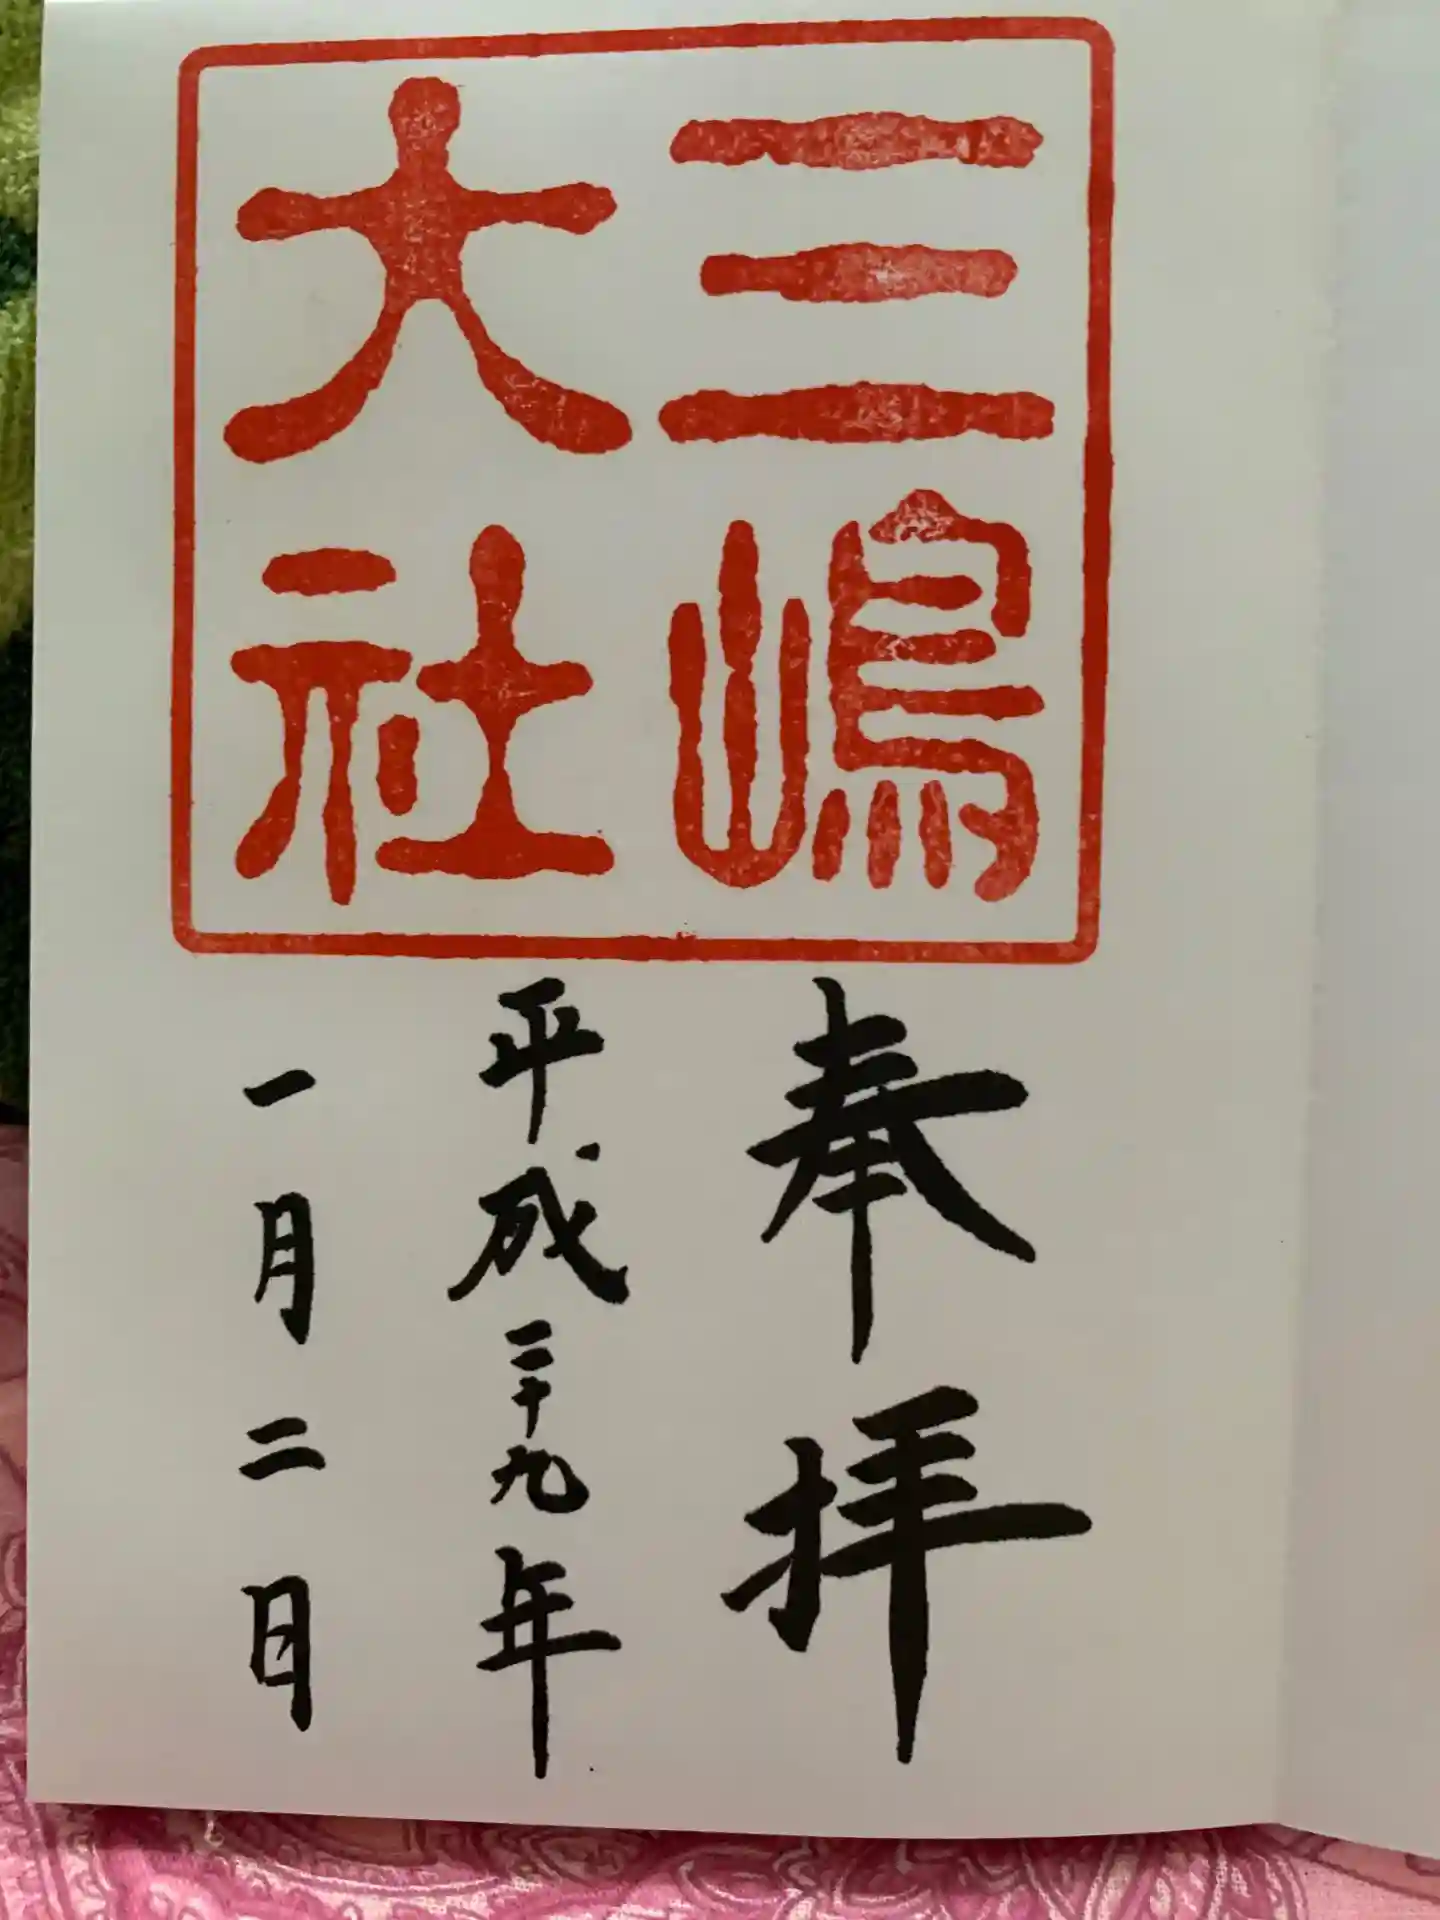 三嶋
大社
奉拝
平成二十九年
一月二日